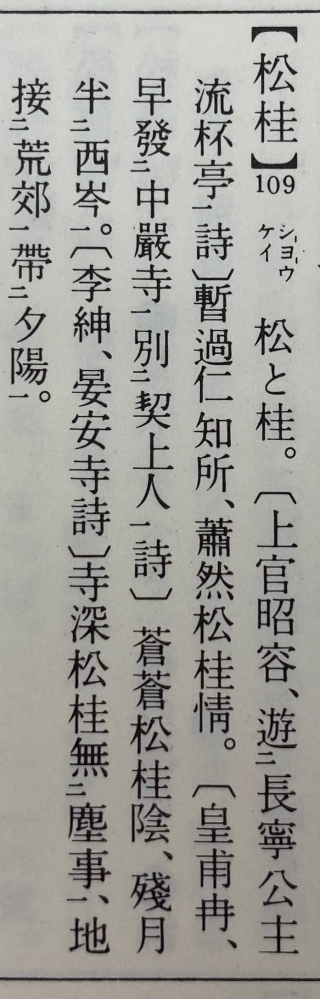 【松桂】109 シヨウケイ 松と桂。〔上官昭容、遊二長寧公主
流杯亭一詩〕暫過仁知所、蕭然松桂情。〔皇甫冉、
早發二中嚴寺一別二契上人一詩〕蒼蒼松桂陰、殘月
半二西岑一。〔李紳、晏安寺詩〕寺深松桂無二塵事一、地
接二荒郊一帶二夕陽一。